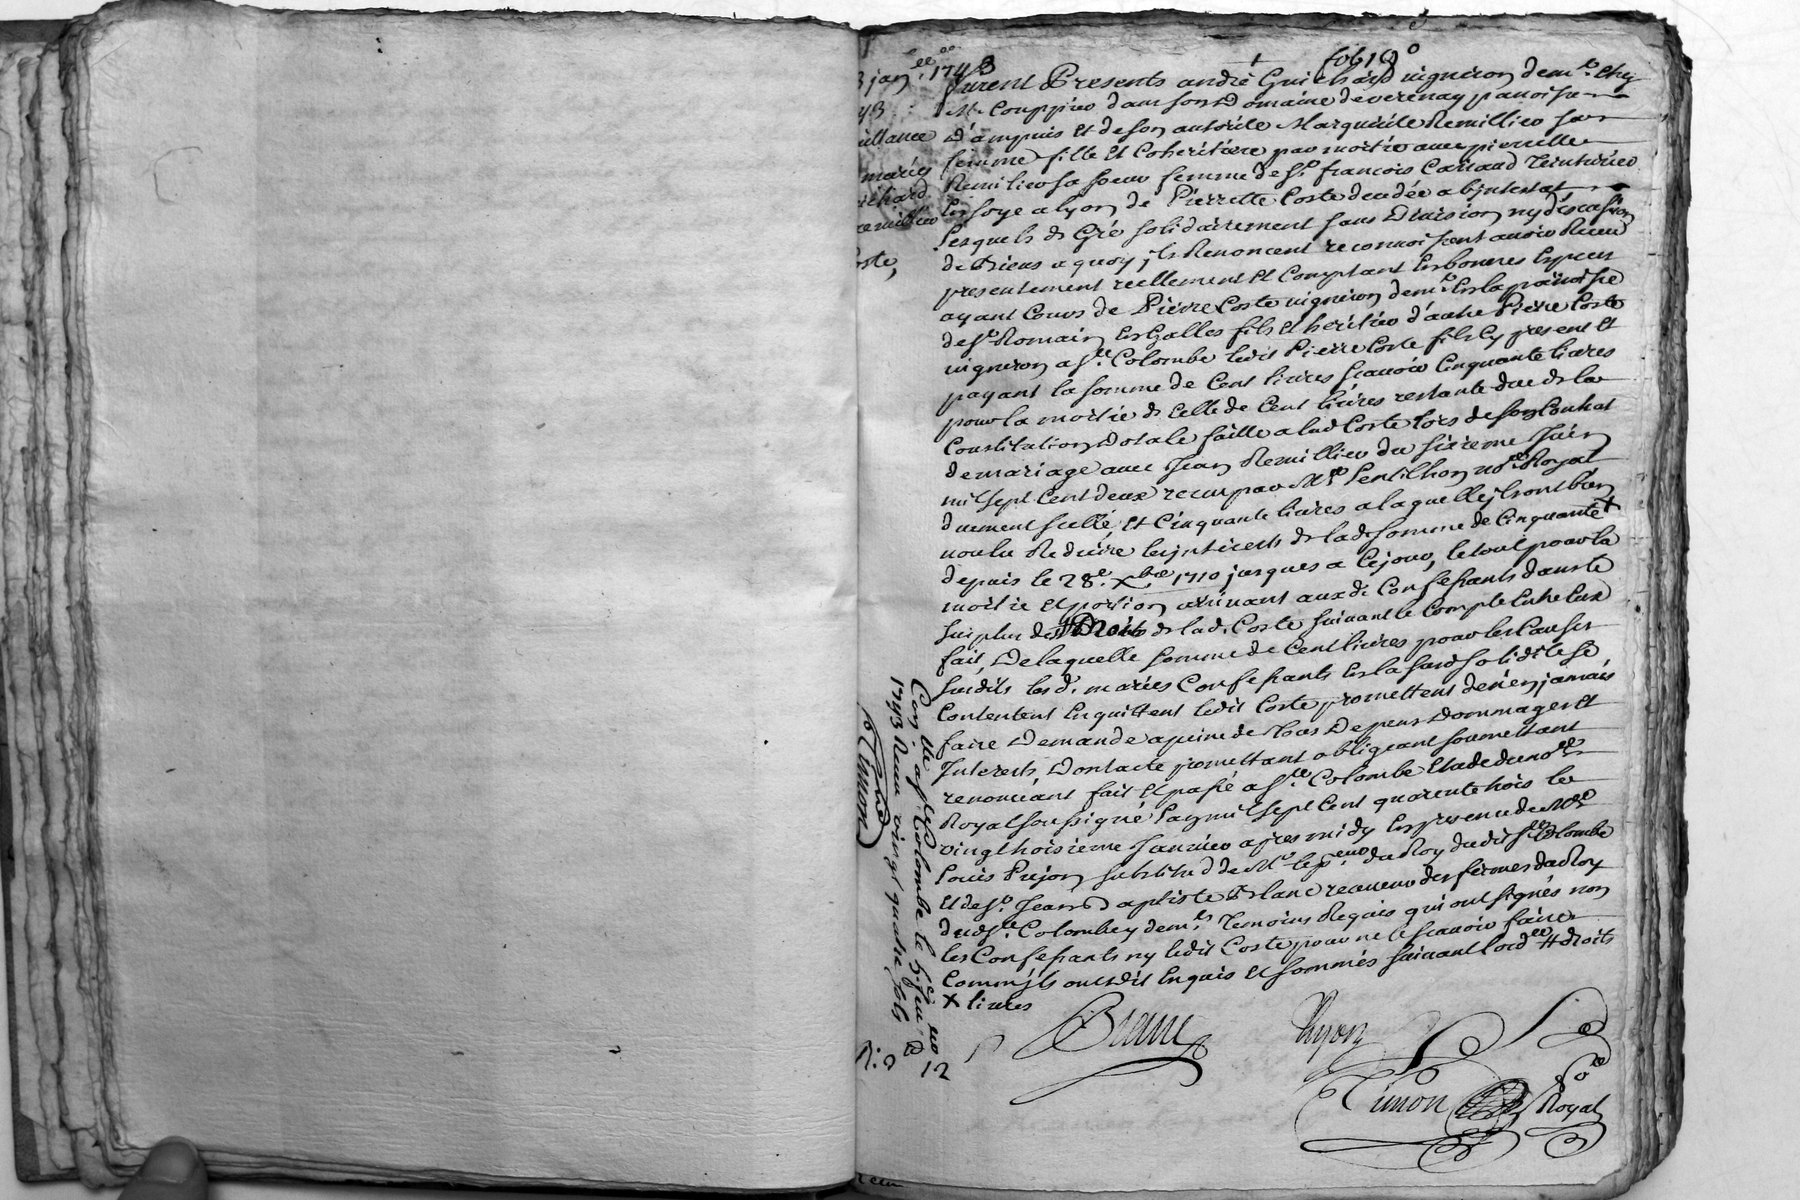 fol 10
3 jan.er 1743
43
quittance
mariés
Guichard
Remillieu
Coste,
furent Presents andré Guichard vigneron demt. chez
Mr. Couppier dans son Domaine de verenay paroisse
d'ampuis Et de son autorité Marguerite Remillieu sa
femme fille Et Coheritiere par moitié avec pierrette
Remilieu sa soeur femme de sr. francois Cattaud Teinturier
En soye a lyon de Pierrette Coste decedée abintestat
Lesquels de Gré solidairement sans Division ny discution
de Biens a quoy ils Renoncent reconnoissent avoir Receu
presentement reellement Et Comptant En bonnes Especes
ayant Cours de Pierre Coste vigneron demt. En la paroisse
de st. Romain En Galles fils Et heritier d'autre Pierre Coste
vigneron a ste. Colombe ledit Pierre Coste fils Cy present Et
payant la somme de Cent livres scavoir Cinquante livres
pour la moitié de Celle de Cent livres restante due de la
Constitution Dotale faitte a lad. Coste lors de son Contrat
de mariage avec Jean Remillieu du sixieme Juin
mil sept Cent deux receu par Me. Pentilhon nore. Royal
duement scellé, Et Cinquante livres a laquelle ils ont bien
voulu Reduire les jnterests de lad. somme de Cinquante X
depuis le 28e. Xbre 1710 jusques a Ce jour, le tout pour la
moitié Et portion avenant auxd. Confessants dans le
surplus des # Droits de lad. Coste suivant le Compte Entre Eux
fait, De laquelle somme de Cent livres pour les Causes
susdits les d. mariés Confessants En la susd. solidité se
Contentent En quittent ledit Coste promettent de n'en jamais
faire Demande a peine de tous Depens Dommages Et
Interests, Dont acte promettant obligeant soumettant
renonceant fait Et passé a ste. Colombe Etude du nore.
Royal soussigné L'an mil sept Cent quarente trois le
vingt troisieme Janvier apres midy En presence de Me.
Louis Prejon substitud de Mr. le pcur. du Roy dudit ste. Colombe
Et de sr. Jean Baptiste Blanc receveur des fermes du Roy
dud. ste. Colombe y demts. Temoins Requis qui ont signés non
les Confessants ny ledit Coste pour ne le scavoir faire
Comm'ils ont dit Enquis Et sommés suivant l'ordce. # droits
X livres
Con. llé a ste. Colombe le 5e. feuer
1743 Receu vingt quatre sols
Timon
12
Blanc
Timon
Royal